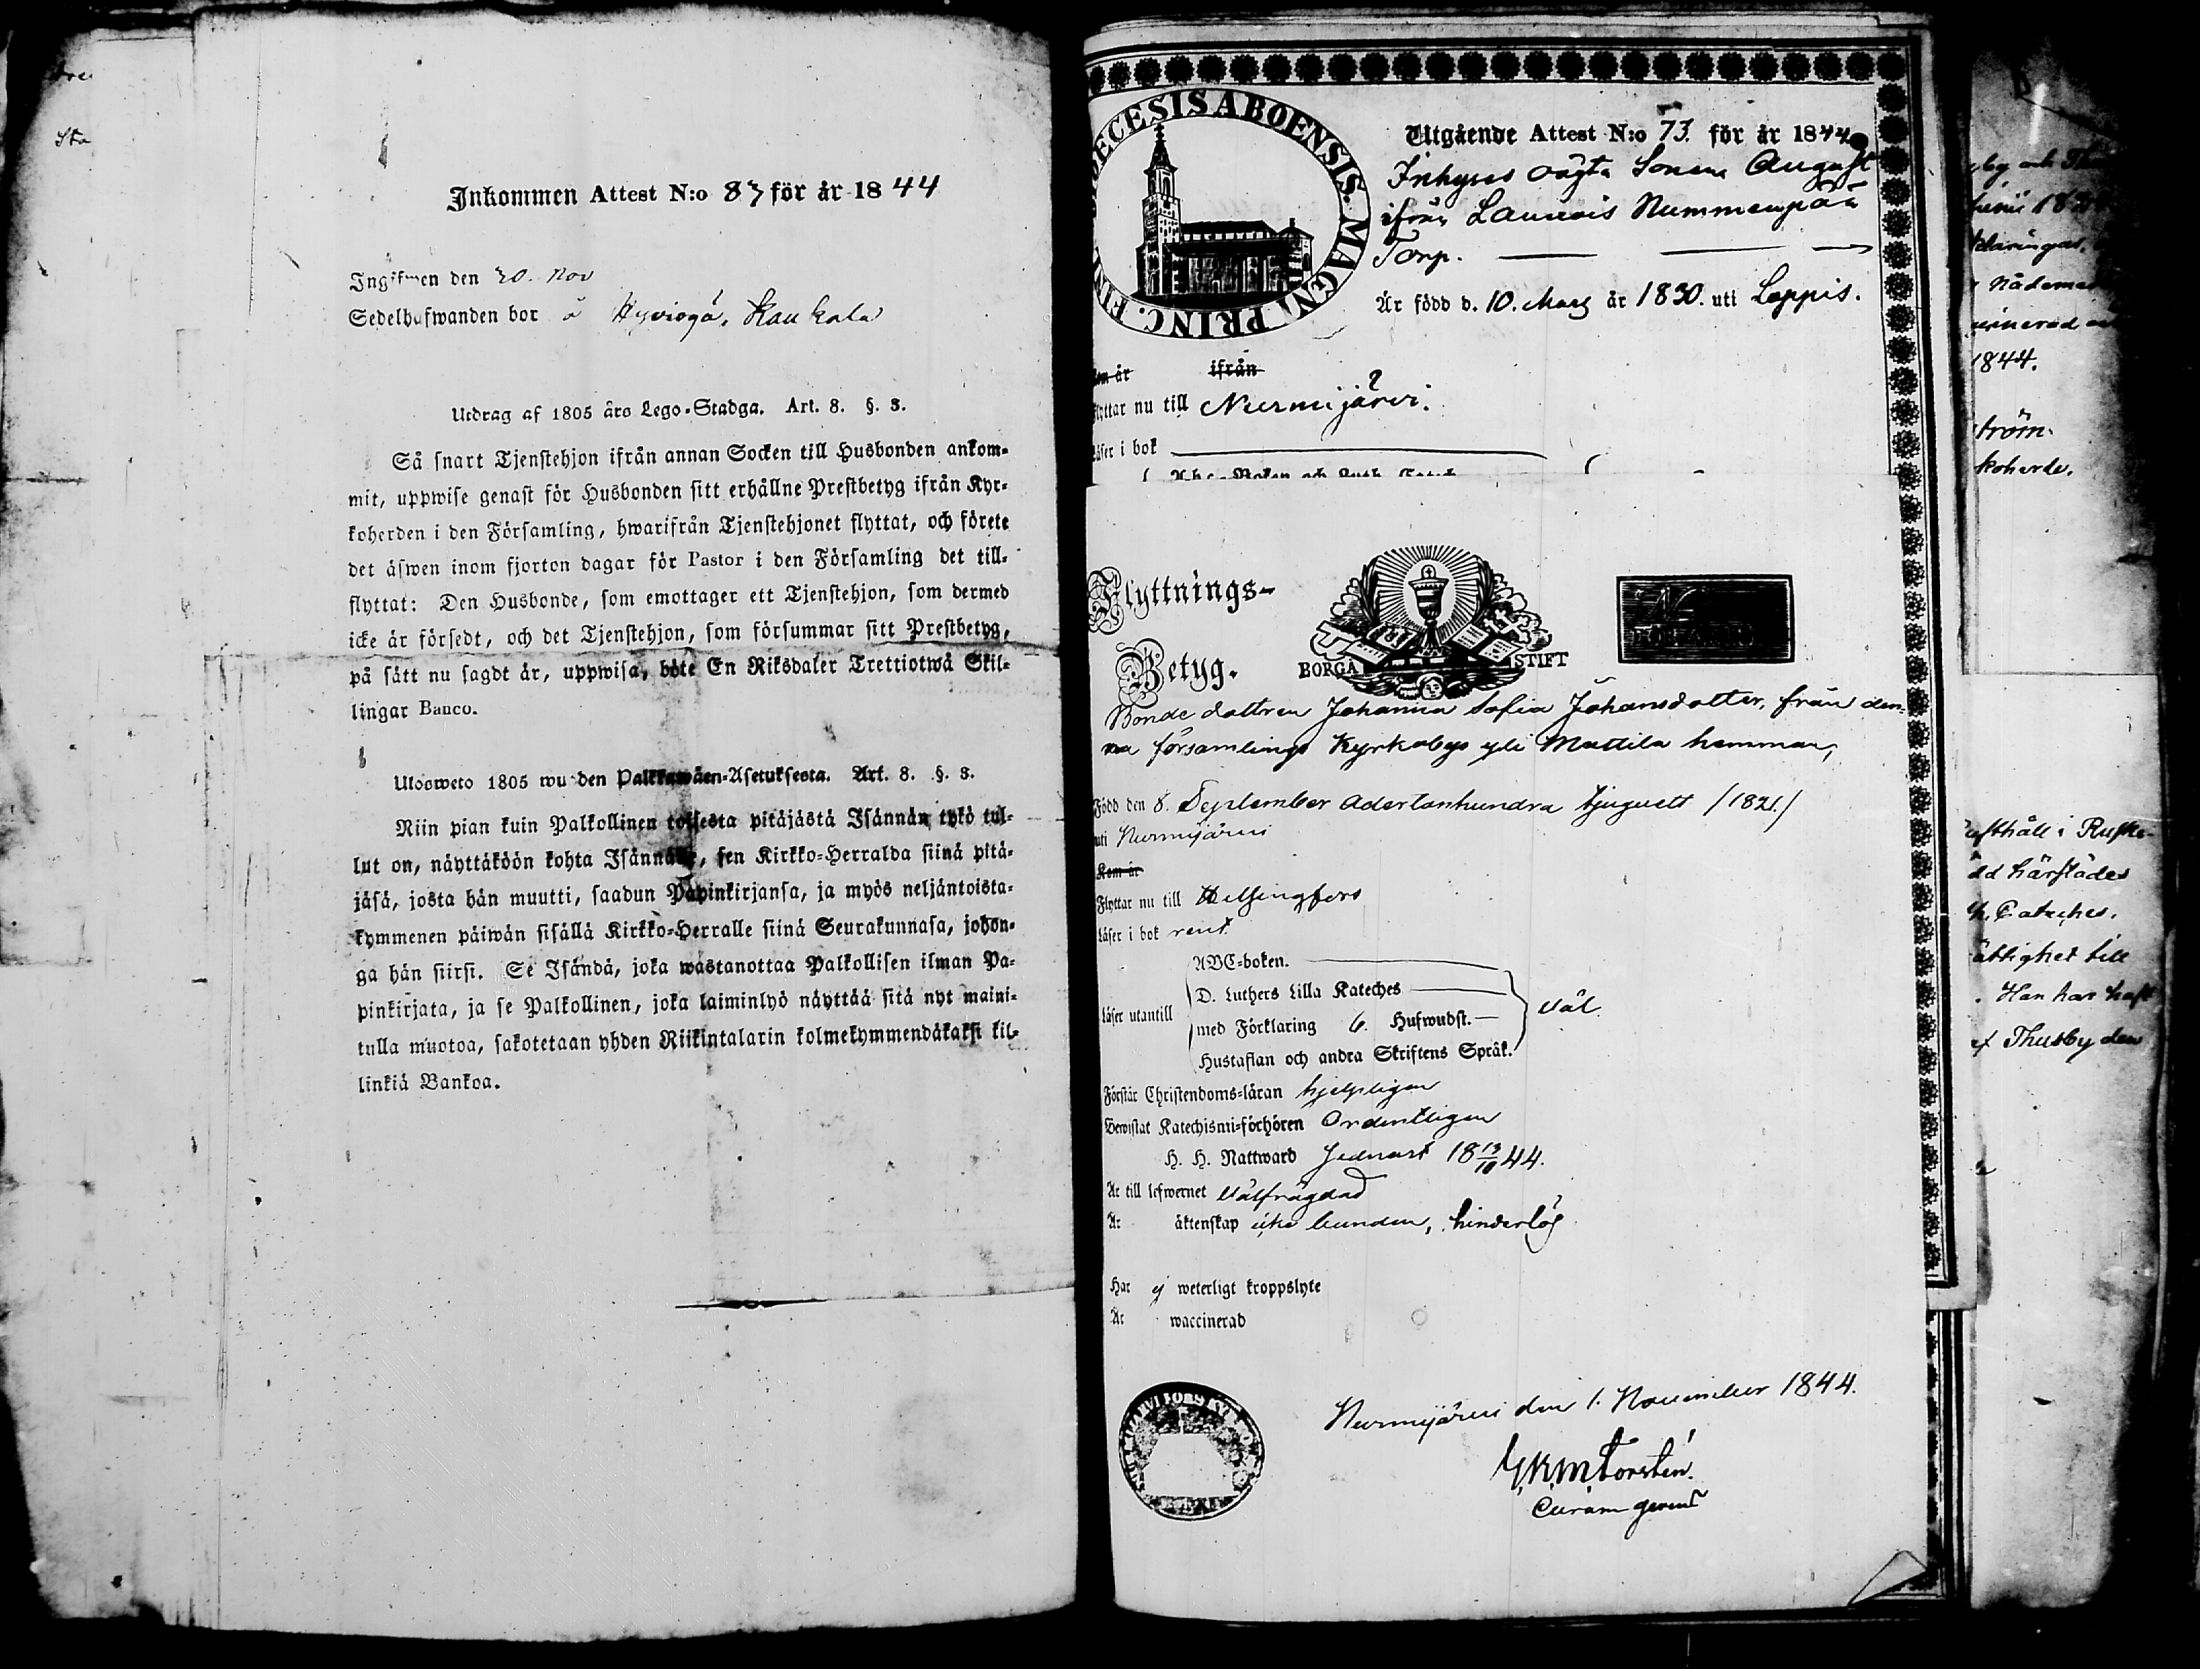 Inkommen Attest N:o 87 för år 1844
Ingifwen den 20. Nov
Sedelhafwanden bor å Hyvingå, Kaukala
Utdrag af 1805 års Lego-Stadga. Art. 8. §. 8.
Så snart Tjenstehjon ifrån annan Socken till Husbonden ankom-
mit, uppwise genast för Husbonden sitt erhållne Prestbetyg ifrån Kyr-
koherden i den Församling, hwarifrån Tjenstehjonet flyttat, och förete
det äfwen inom fjorton dagar för Pastor i den Församling det till-
flyttat: Den Husbonde, som emottager ett Tjenstehjon, som dermed
icke är försedt, och det Tjenstehjon, som försummar sitt Prestbetyg,
på sätt nu sagdt är, uppwisa, böte En Riksdaler Trettiotwå Skil-
lingar Banco.
Ulosweto 1805 wuoden Palkkawäen-Asetuksesta. Art. 8. §. 8.
Niin pian kuin Palkollinen toisesta pitäjästä Isännän tykö tul-
lut on, näyttäköön kohta Isännälle, sen Kirkko-Herralda siinä pitä-
jäsä, josta hän muutti, saadun Papinkirjansa, ja myös neljäntoista-
kymmenen päiwän sisällä Kirkko-Herralle siinä Seurakunnasa, johon-
ga hän siirsi. Se Isändä, joka wastanottaa Palkollisen ilman Pa-
pinkirjata, ja se Palkollinen, joka laiminlyö näyttää sitä nyt maini-
tulla muotoa, sakotetaan yhden Riikintalarin kolmekymmendäkaksi kil-
linkiä Bankoa.
DIOECESIS ABOENSIS. MAGNI PRINC. FINL
Utgående Attest N:o 73. för år 1844
Inhyses oägta Sonen August
ifrån Launois Nummenpää
Torp.
Är född d. 10. Mars år 1830. uti Loppis.
Kom år ifrån
Flyttar nu till Nurmijärvi.
Läser i bok
Flyttnings-
Betyg.
BORGÅ STIFT
Bonde dottren Johanna Sofia Johansdotter, från den-
na församlings Kyrkobys yli Mattila hemman,
Född den 8. September Adertonhundra tjuguett /1821./
uti Nurmijärvi
Kom år
Flyttar nu till Helsingfors
Läser i bok rent
Läser utantill
ABC-boken.
D. Luthers Lilla Kateches
med Förklaring 6. Hufwudst.
Hustaflan och andra Skriftens Språk.
väl
Förstår Christendoms-läran hjelpligen
Bewistat Katechismi-förhören Ordentligen
H. H. Nattward Sednast 18 13/10 44.
Är till lefwernet Välfrägdad
Är äktenskap icke bunden, hinderlös
Har ej weterligt kroppslyte
Är waccinerad
Nurmijärvi den 1. November 1844.
Curam gerens
1844.
ström.
koherde.